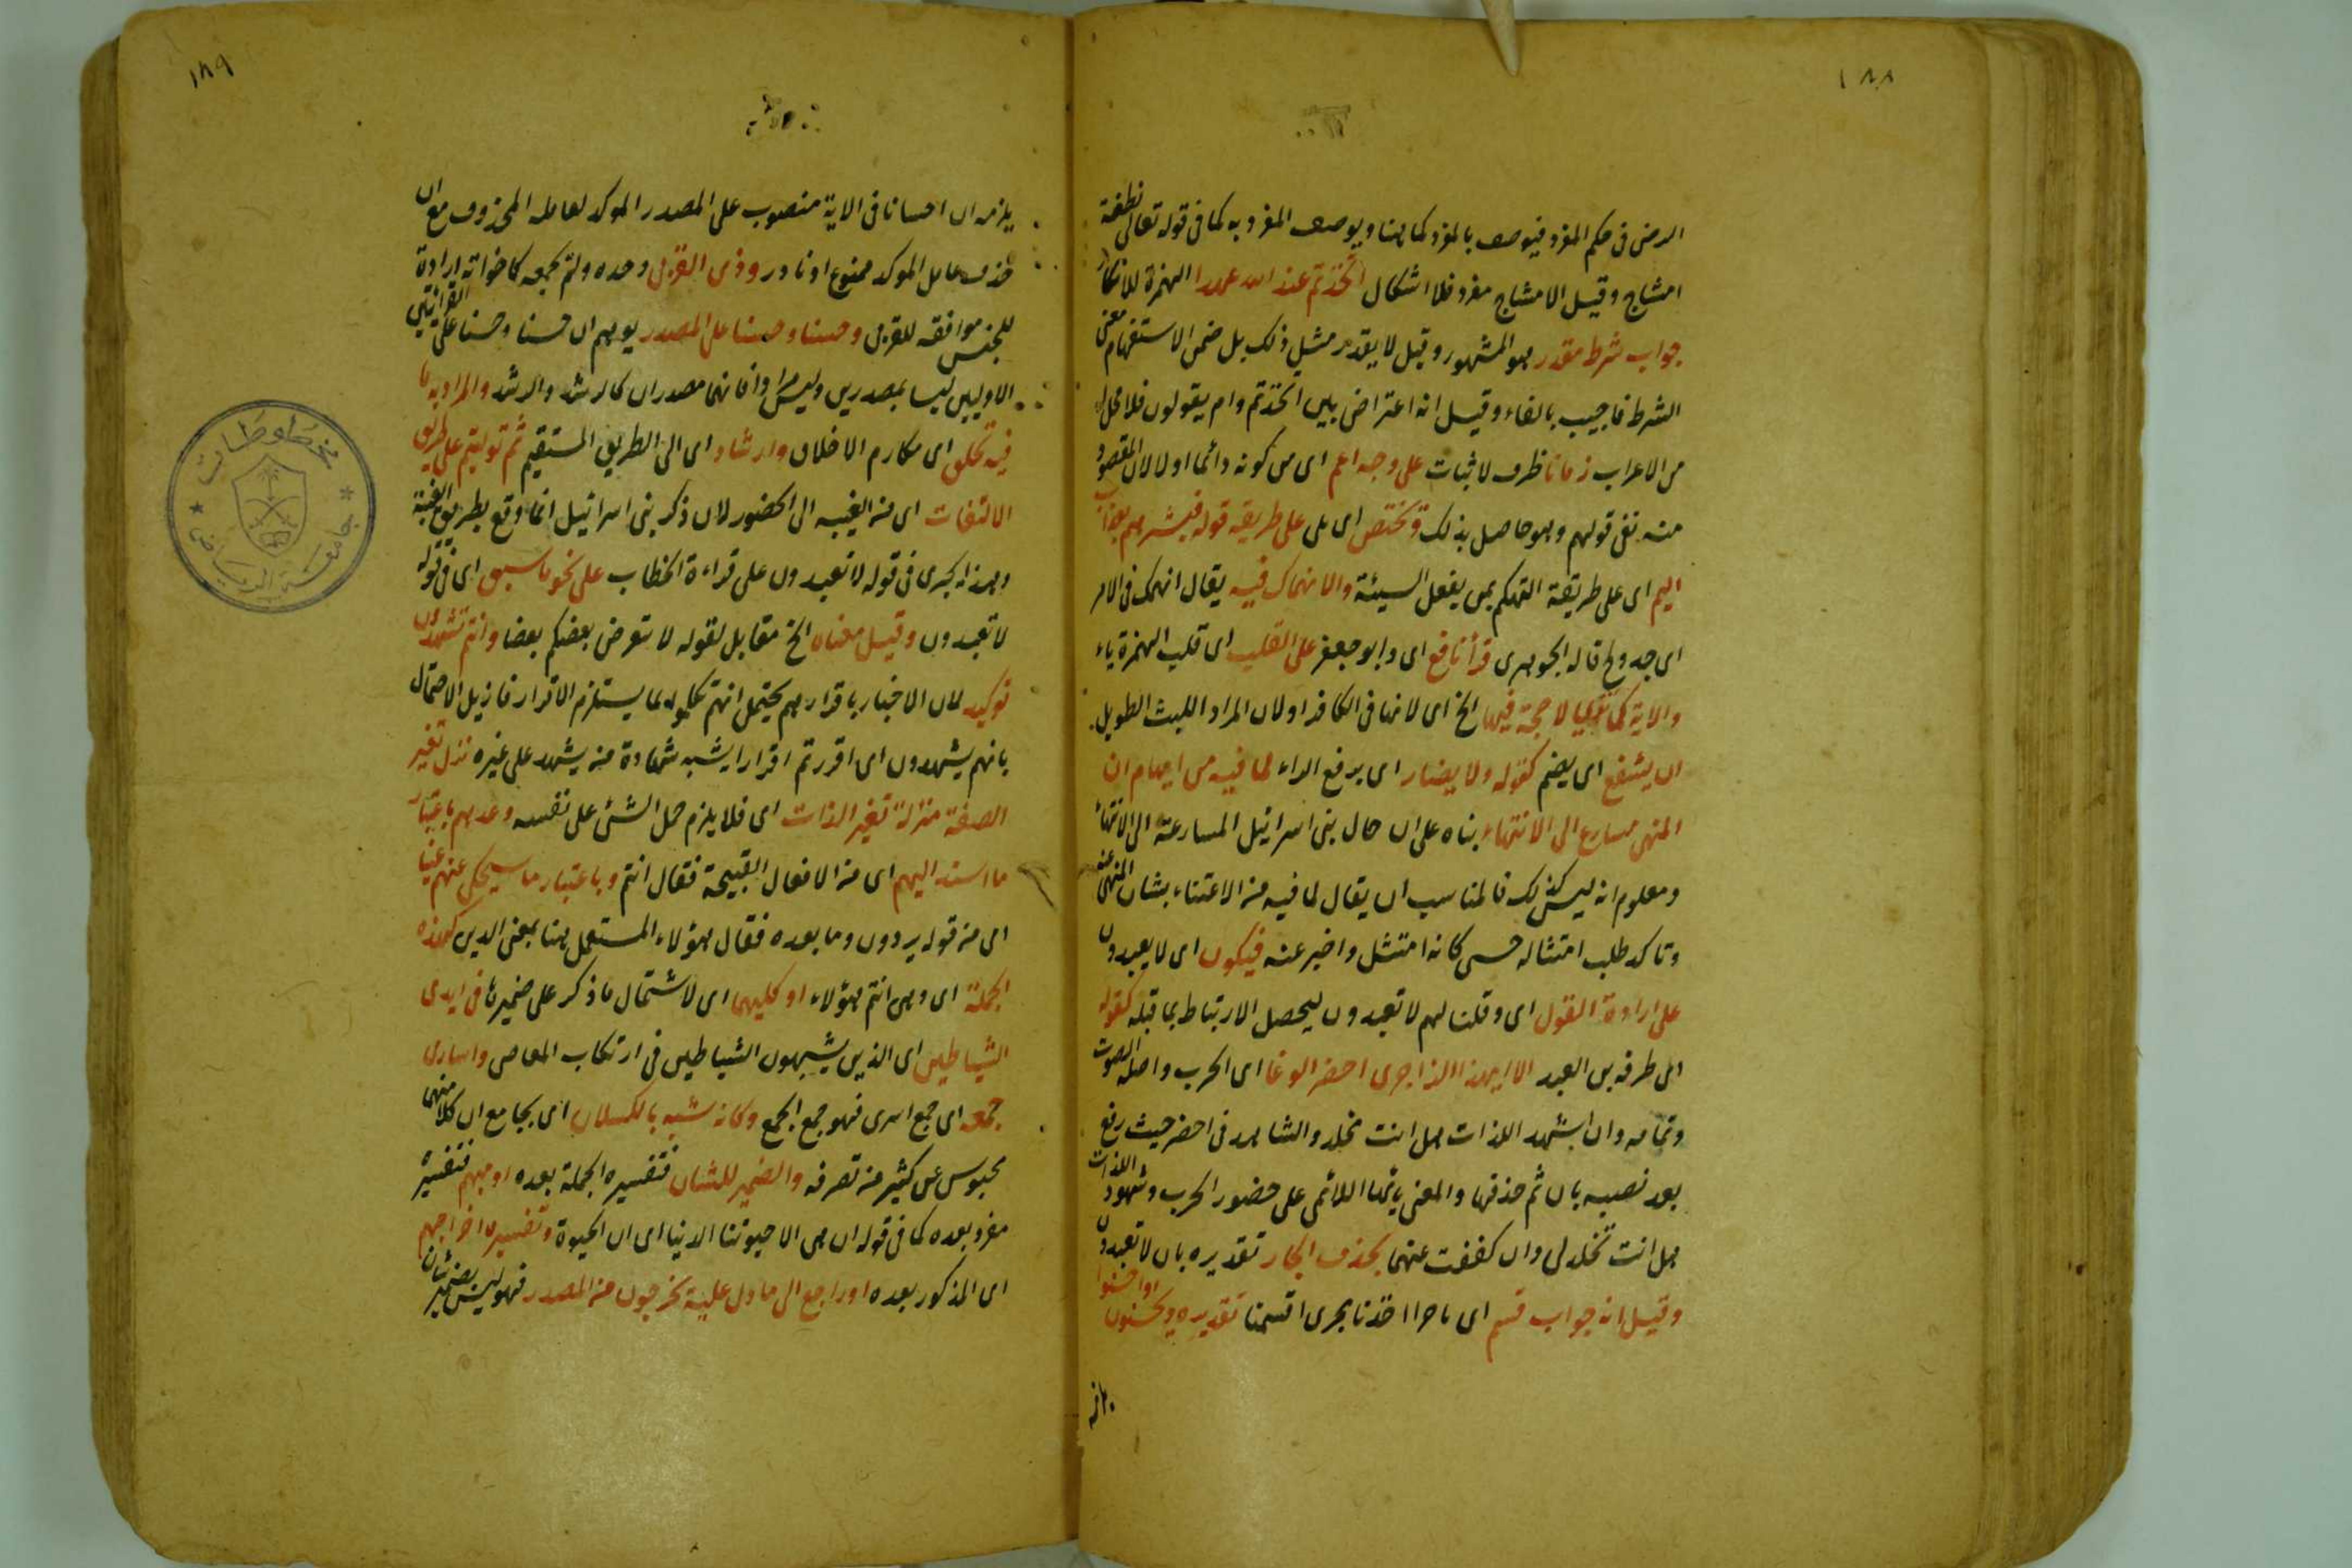 ١٨٨
الارض فى حكم المفرد فيوصف بالمفرد كما هنا ويوصف المفرد به كما فى قوله تعالى نطفة
امشاج وقيل الامشاج مفرد فلا اشكال اتخذتم عند الله عهدا الهمزة للانكار
جواب شرط مقدر هو المشهور وقيل لا يقدر مثل ذلك بل ضمن الاستفهام معنى
الشرط فاجيب بالفاء وقيل انه اعتراض بين اتخذتم وام يقولون فلا محل له
من الاعراب زمانا ظرف لاثبات على وجه اعم اى من كونه دائما اولا لان المقصود
منه نفى قولهم وهو حاصل بذلك وتختص اى بلى على طريقه قوله فبشرهم بعذاب
اليم اى على طريقة التهكم بمن يفعل السيئة والانهماك فيه يقال انهمك فى الامر
اى جد ولج قاله الجوهرى قرأ نافع اى وابو جعفر على القلب اى قلب الهمزة ياء
والاية كما ترى لا حجة فيها الخ اى لانها فى الكافر اولان المراد اللبث الطويل
ان يشفع اى يضم كقوله ولا يضار اى برفع الراء لما فيه من ايهام ان
المنهى مسارع الى الانتهاء بناه على ان حال بنى اسرائيل المسارعة الى الانتهاء
ومعلوم انه ليس كذلك فالمناسب ان يقال لما فيه من الاعتناء بشان المنهى عنه
وتاكد طلب امتثاله حتى كانه امتثل واخبر عنه فيكون اى لا يعبدون
على ارادة القول اى وقلنا لهم لا تعبدون ليحصل الارتباط بما قبله كقوله
اى طرفه بن العبد الا ايهذا الزاجرى احضر الوغا اى الحرب واصله الصوت
وتمامه وان اشهد اللذات هل انت مخلد والشاهد فى احضر حيث رفع
بعد نصبه بان ثم حذفها والمعنى يا ايها اللائمى على حضور الحرب وشهود اللذات
هل انت تخلدنى وان كففت عنهما بحذف الجار تقديره بان لا تعبدون
وقيل انه جواب قسم اى باجرا اخذنا مجرى اقسمنا تقديره وتحسنون او احسنوا
١٨٩
يلزمه ان احسانا فى الاية منصوب على المصدر الموكد لعامله المحذوف مع ان
حذف عامل الموكد ممنوع او نادر وذى القربى وحده ولم يجمعه كاخواته ارادة
للجنس موافقه للقربى وحسنا وحسنا على المصدر يوهم ان حسنا وحسنا على القرائتين
الاوليين ليسا بمصدرين وليس مرادا فانهما مصدران كالرشد والرشد والمراد به ما
فيه تخلق اى مكارم الاخلاق وارشاد اى الى الطريق المستقيم ثم توليتم على طريق
الالتفات اى من الغيبه الى الحضور لان ذكر بنى اسرائيل انما وقع بطريق الغيبة
وهذا يجرى فى قوله لا تعبدون على قراءة الخطاب على نحو ما سبق اى فى قوله
لا تعبدون وقيل معناه الخ مقابل لقوله لا يتعرض بعضكم بعضا وانتم تشهدون
توكيد لان الاخبار باقرارهم يحتمل انهم تكلموا بما يستلزم الاقرار فازيل الاحتمال
بانهم يشهدون اى اقررتم اقرارا يشبه شهادة من يشهد على غيره نزل تغير
الصفة منزلة تغير الذات اى فلا يلزم حمل الشئ على نفسه وعدهم باعتبار
ما اسند اليهم اى من الافعال القبيحة فقال انتم وباعتبار ما سيحكى عنهم غيبا
اى من قوله يردون وما بعده فقال هؤلاء المستعمل هنا بمعنى الذين كهذه
الجملة اى وهى انتم هؤلاء او كليهما اى لاشتمال ما ذكر على ضميرها فى ايدى
الشياطين اى الذين يشبهون الشياطين فى ارتكاب المعاصى واسارى
جمعه اى جمع اسرى فهو جمع الجمع وكانه شبه بالكسلان اى بجامع ان كلا منهما
محبوس عن كثير من تصرفه والضمير للشان فتفسيره الجملة بعده او مبهم فتفسيره
مفرد بعده كما فى قوله ان هى الا حيوتنا الدنيا اى ان الحيوة وتفسيره اخراجهم
اى المذكور بعده او راجع الى ما دل عليه تخرجون من المصدر فهو ليس بضمير شان
مخطوطات
جامعة الرياض